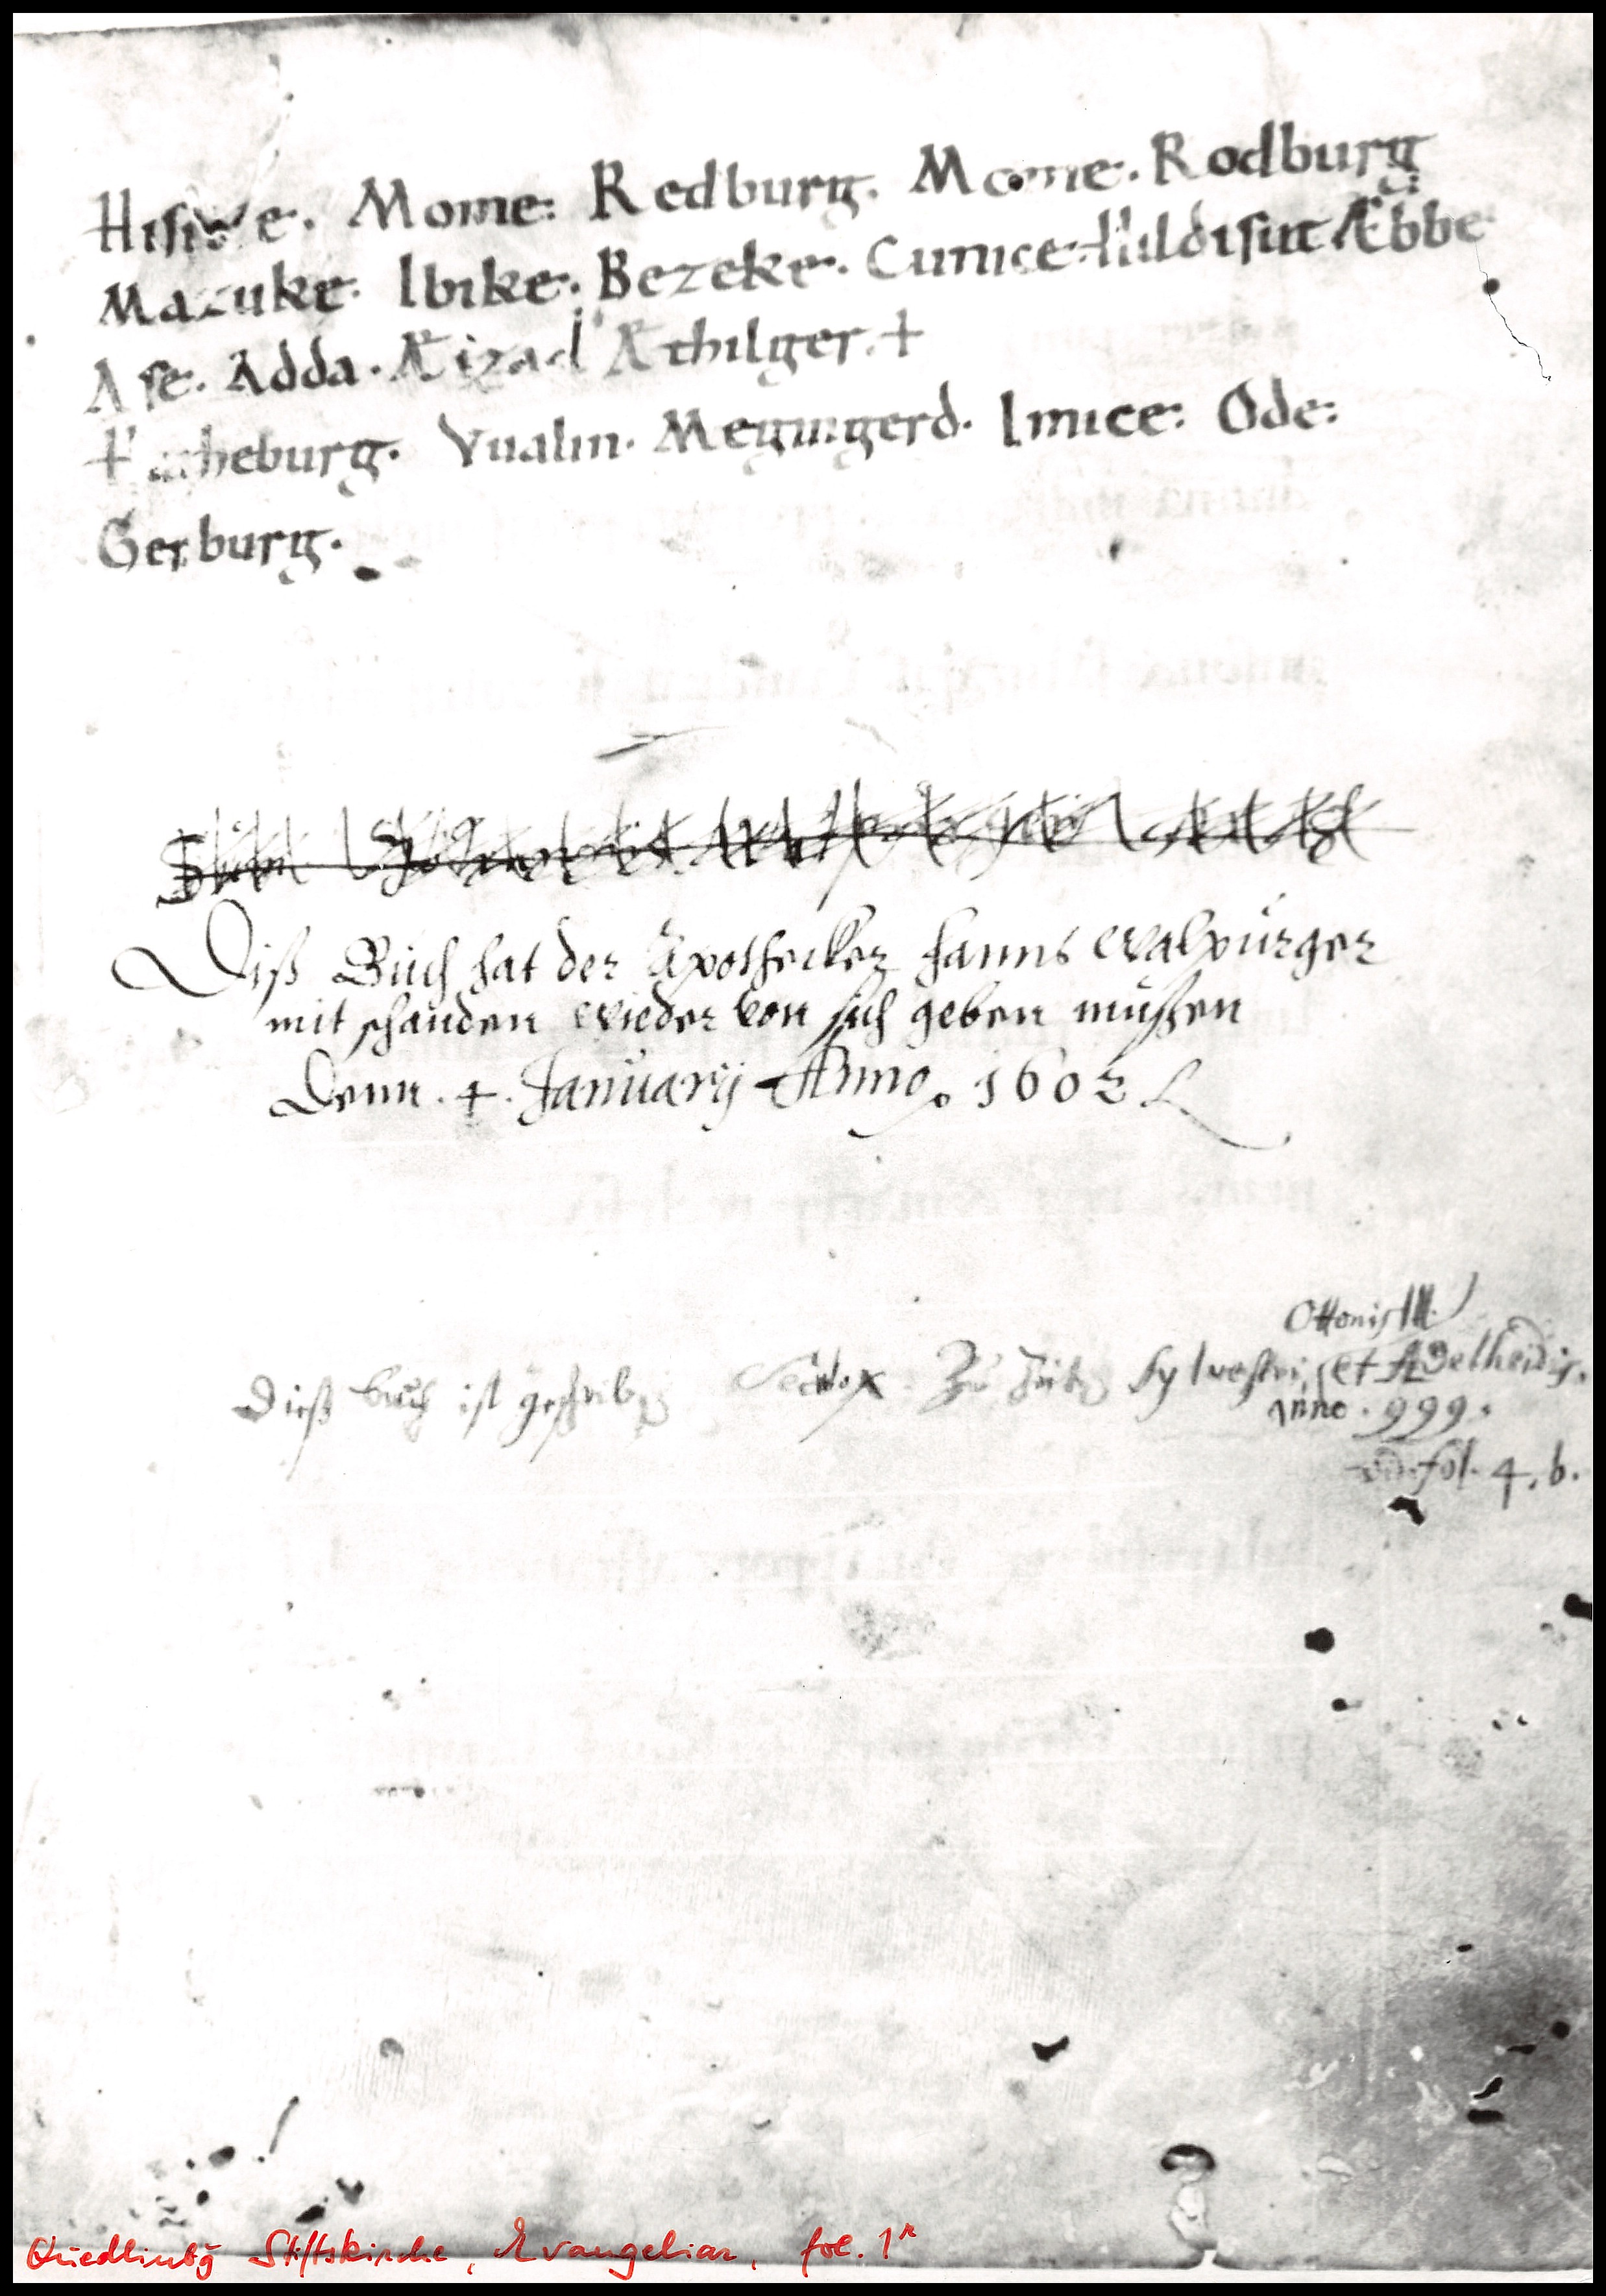 Mome: Redburg. Mome. Rodburg
Mazuke. Ibike. Bezeke. Cunice. Hildisuit Æbbe
Ase. Adda. Æizad Æthilger. +
Vualin. Meginigerd. Imice: Ode:
Gerburg.
Diß Buch hat der Apothecker Hanns Walpurger
mit schanden wieder von sich geben mußen
Denn. 4. January Anno. 1602
Ottonis III.
Dieß buch ist geschrieben Zu Zeiten Sylvestri, et Adelheidis.
Anno. 999.
vid. fol. 4. b.
Quedlinburg Stiftskirche, Evangeliar, fol. 1r